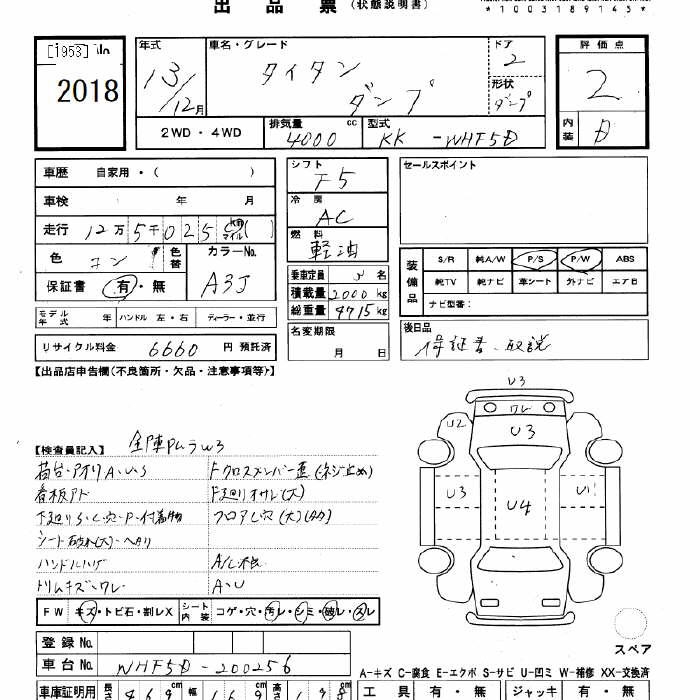 出品票 (状態説明書)
*1003189145*
[1953]
2018
年式 13/12月
車名・グレード タイタン ダンプ
ドア 2
形状 ダンプ
評価点 2
内装 D
2WD・4WD
排気量 4000 cc
型式 KK-WHF5D
車歴 自家用・( )
シフト F5
セールスポイント
車検 年 月
冷房 AC
走行 12万5千025 マイル ( )
燃料 軽油
色 コン
色替
カラーNo. A3J
保証書 有・無
乗車定員 名
積載量 2000 kg
総重量 4715 kg
装備品
S/R 純A/W P/S P/W ABS
純TV 純ナビ 革シート 外ナビ エアB
ナビ型番:
モデル年式 年 ハンドル 左・右 ディーラー・並行
名変期限 月 日
後日品 保証書・取説
リサイクル料金 6660 円 預託済
【出品店申告欄(不良箇所・欠品・注意事項等)】
【検査員記入】
荷台・アオリA・U・S
看板アト
下廻りS・C・穴・P・付着物
シート破れ(大)・ヘタリ
ハンドルハゲ
トリムキズ・ワレ
Fクロスメンバー直(ネジ止め)
F廻りオサレ(大)
フロアC穴(大)
A/C不良
A・U
U3
ワレ
U2 U3
U3 U4 U1
FW キズ・トビ石・割レX
シート内装 コゲ・穴・汚レ・シミ・破レ・スレ
スペア
登録No.
車台No. WHF5D-200256
A-キズ C-腐食 E-エクボ S-サビ U-凹ミ W-補修 XX-交換済
車庫証明用 長さ 469 cm 169 cm 高さ 198 cm
工具 有・無 ジャッキ 有・無